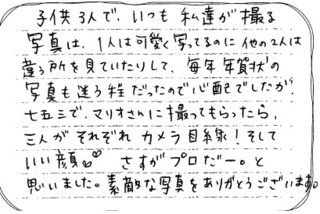 子供3人で、いつも私達が撮る
写真は、1人は可愛く写ってるのに他の2人は
違う所を見ていたりして、毎年年賀状の
写真も迷う程だったので心配でしたが、
七五三で、マリオさんに撮ってもらったら、
三人がそれぞれカメラ目線!そして
いい顔♡♡ さすがプロだー。と
思いました。素敵な写真をありがとうございます。